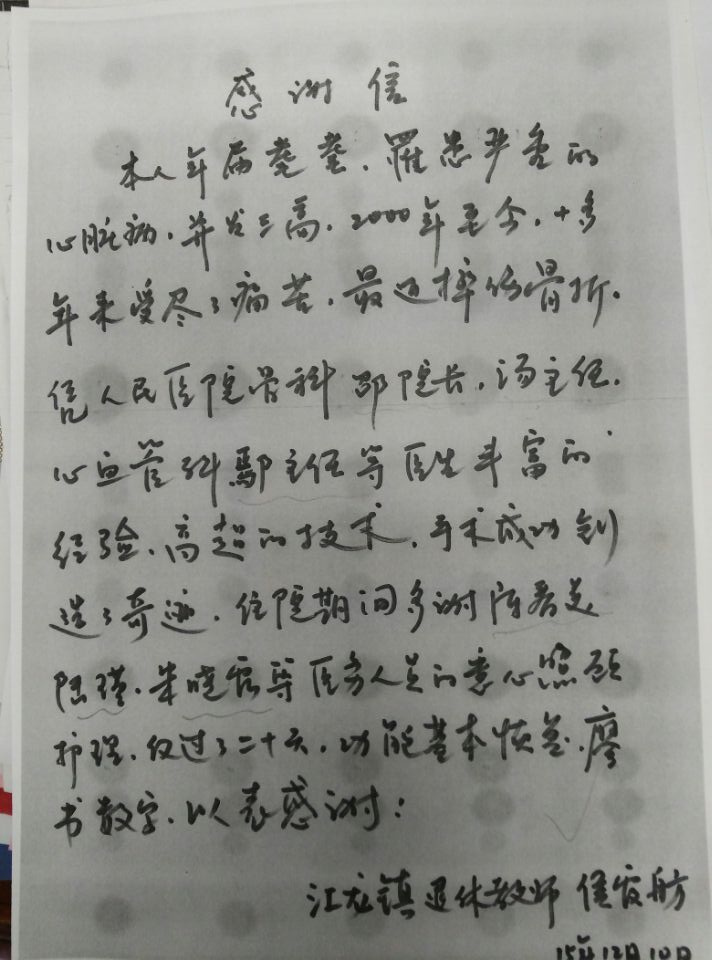 感谢信
本人年届耄耋,罹患严重的
心脏病,并发三高,2000年至今,十多
年来受尽了痛苦,最近摔伤骨折,
凭人民医院骨科邵院长,汤主任,
心血管科鄢主任等医生丰富的
经验,高超的技术,手术成功创
造了奇迹,住院期间多谢
陆瑾,朱晓露等医务人员的悉心照顾
护理,仅过了二十天,功能基本恢复,廖
书数字,以表感谢!
江龙镇退休教师
15年12月10日